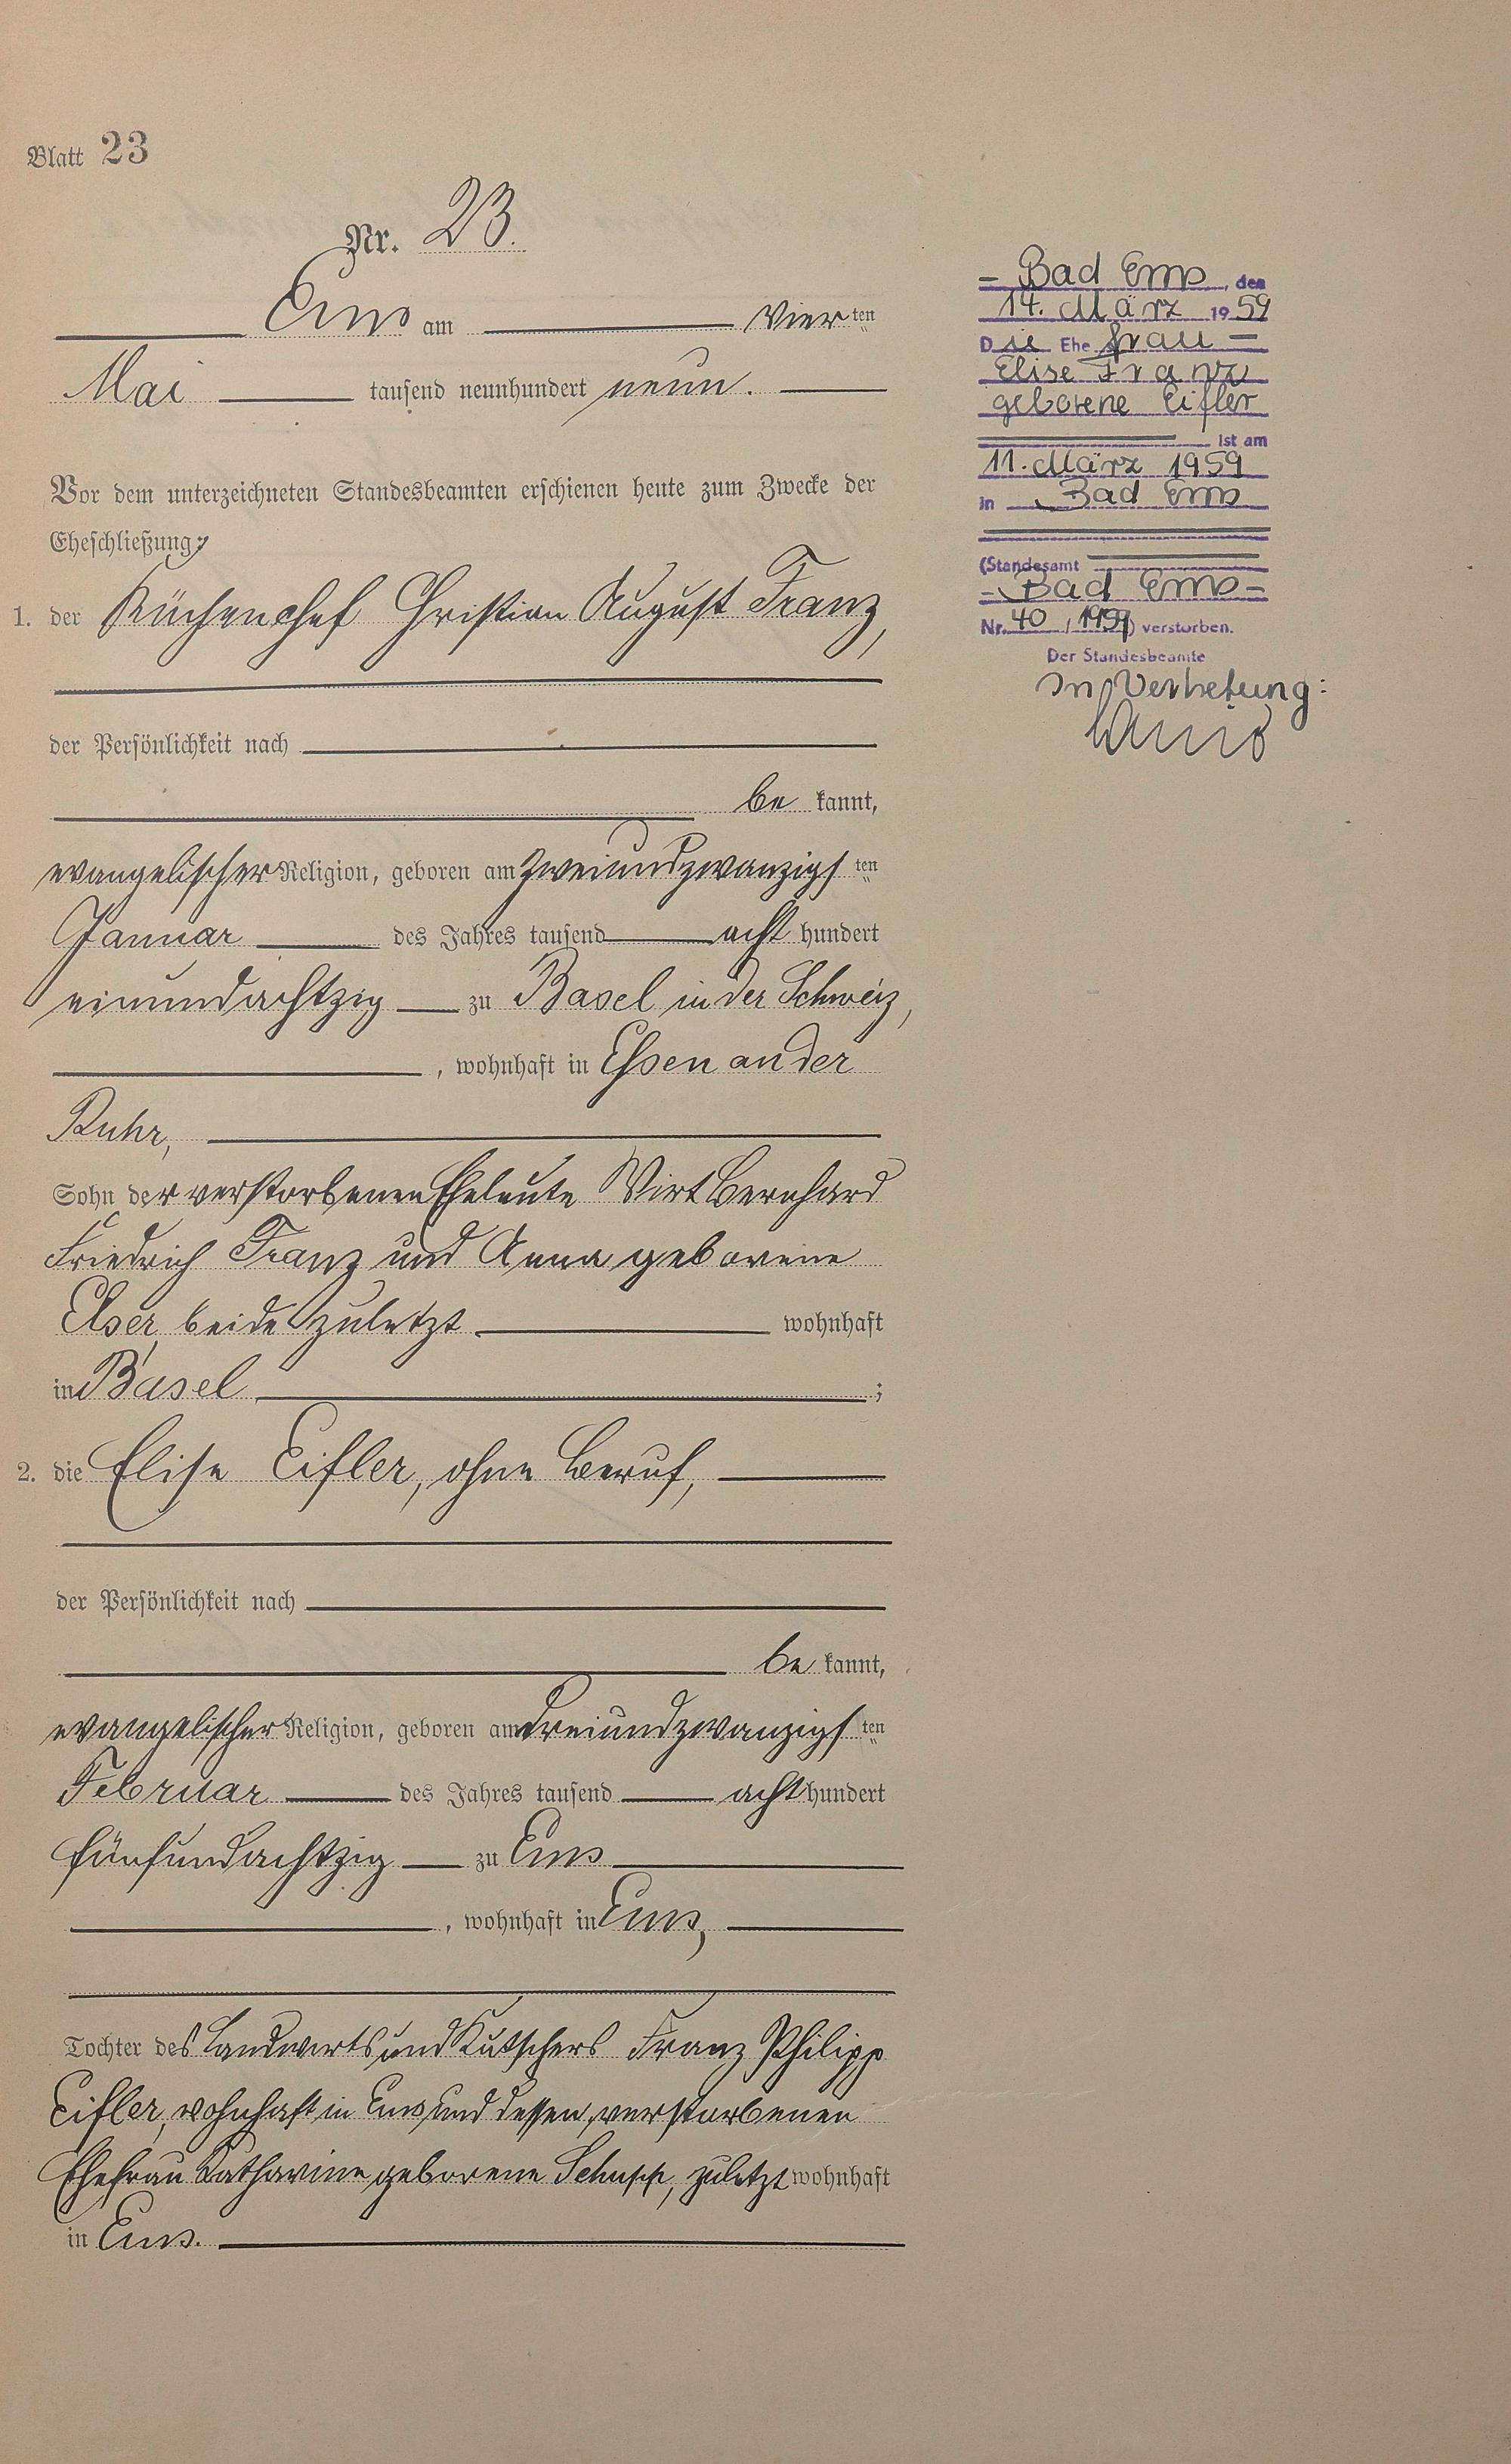 Blatt 23
Nr. 23.
Ems am vierten
Mai tausend neunhundert neun.
Vor dem unterzeichneten Standesbeamten erschienen heute zum Zwecke der
Eheschließung:
1. der Küchenchef Christian August Franz,
der Persönlichkeit nach
be kannt,
evangelischer Religion, geboren am zweiundzwanzigsten
Januar des Jahres tausend acht hundert
einundachtzig zu Basel in der Schweiz,
, wohnhaft in Essen an der
Ruhr,
Sohn der verstorbenen Eheleute Wirt Bernhard
Friedrich Franz und Anna geborene
Elser, beide zuletzt wohnhaft
in Basel ;
2. die Elise Eifler, ohne Beruf,
der Persönlichkeit nach
be kannt,
evangelischer Religion, geboren am dreiundzwanzigsten
Februar des Jahres tausend acht hundert
fünfundachtzig zu Ems
, wohnhaft in Ems,
Tochter des Landwirts und Kutschers Franz Philipp
Eifler, wohnhaft in Ems und dessen verstorbenen
Ehefrau Katharine geborene Schupp, zuletzt wohnhaft
in Ems.
Bad Ems, den
14. März 1959
Die Ehefrau
Elise Franz
geborene Eifler
ist am
11. März 1959
in Bad Ems
(Standesamt
Bad Ems
Nr. 40 / 1959) verstorben.
Der Standesbeamte
In Vertretung: